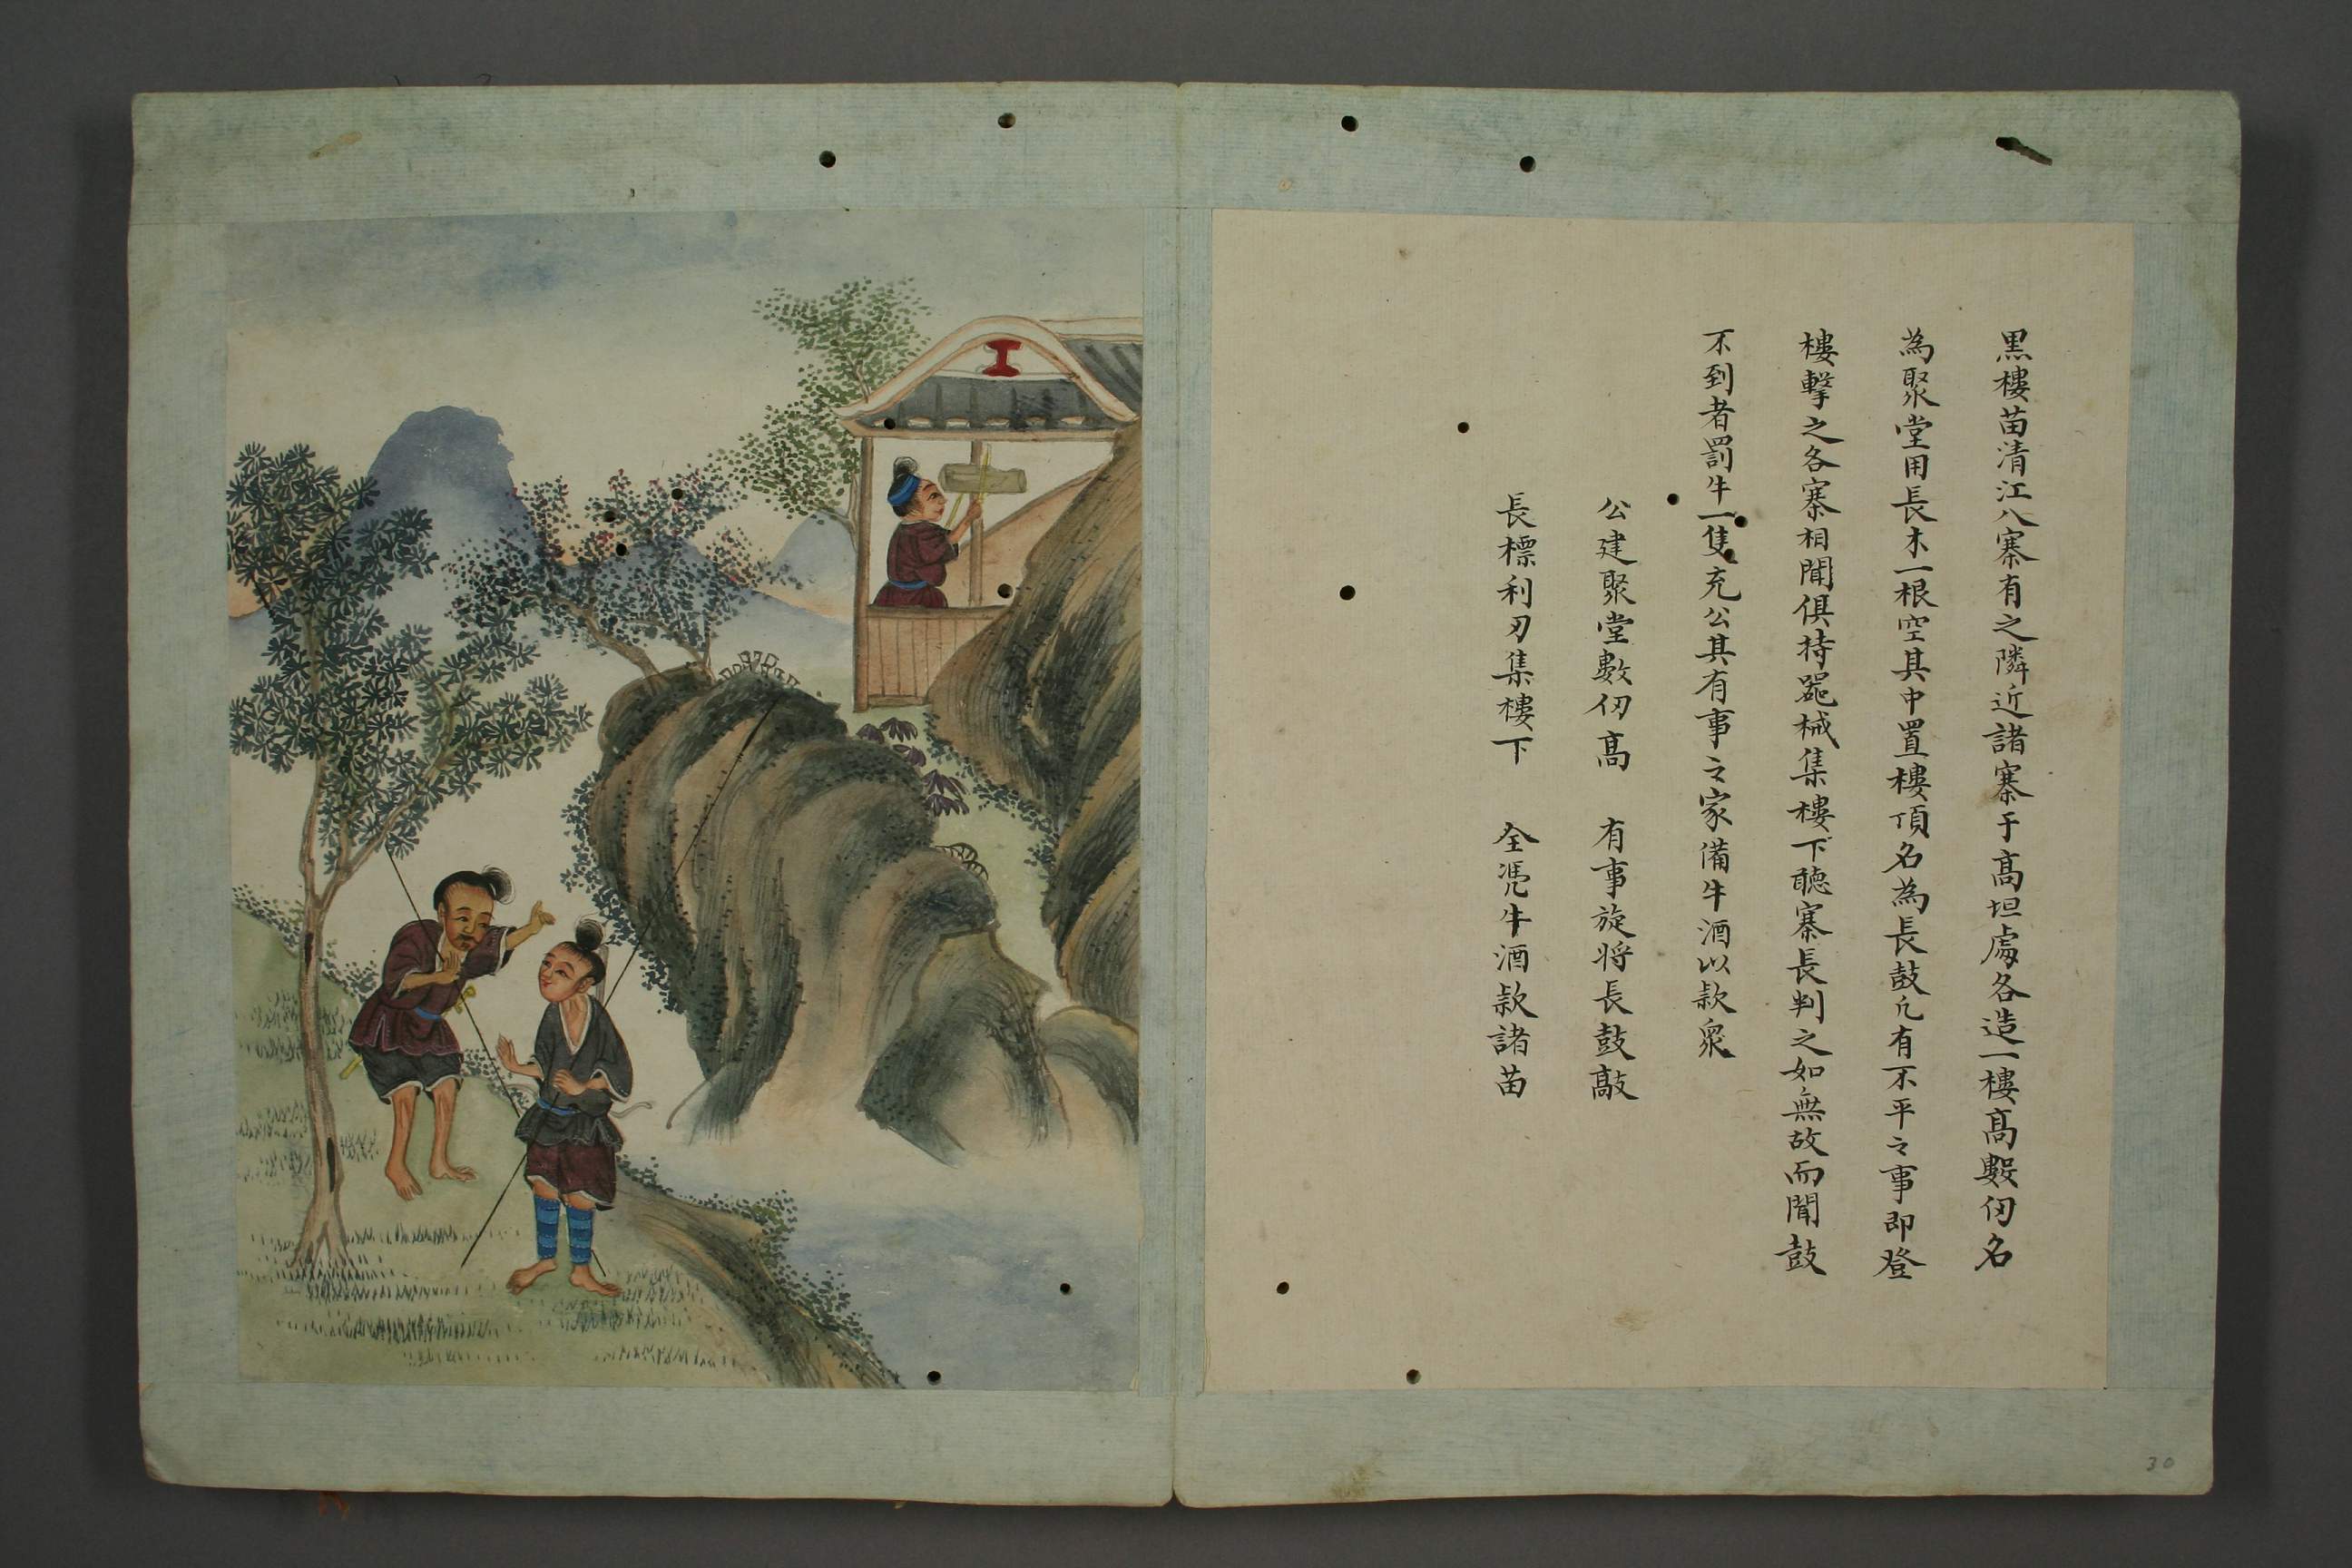 黒樓苗清江八寨有之隣近諸寨于髙坦處各造一樓髙數仞名
為聚堂用長木一根空其中置樓頂名為長鼓凢有不平之事即登
樓擊之各寨相聞俱持噐械集樓下聽寨長判之如無故而聞鼓
不到者罰牛一隻充公其有事之家備牛酒以款衆
公建聚堂數仞髙　有事旋将長鼓敲
長標利刃集樓下　全凴牛酒款諸苗
30